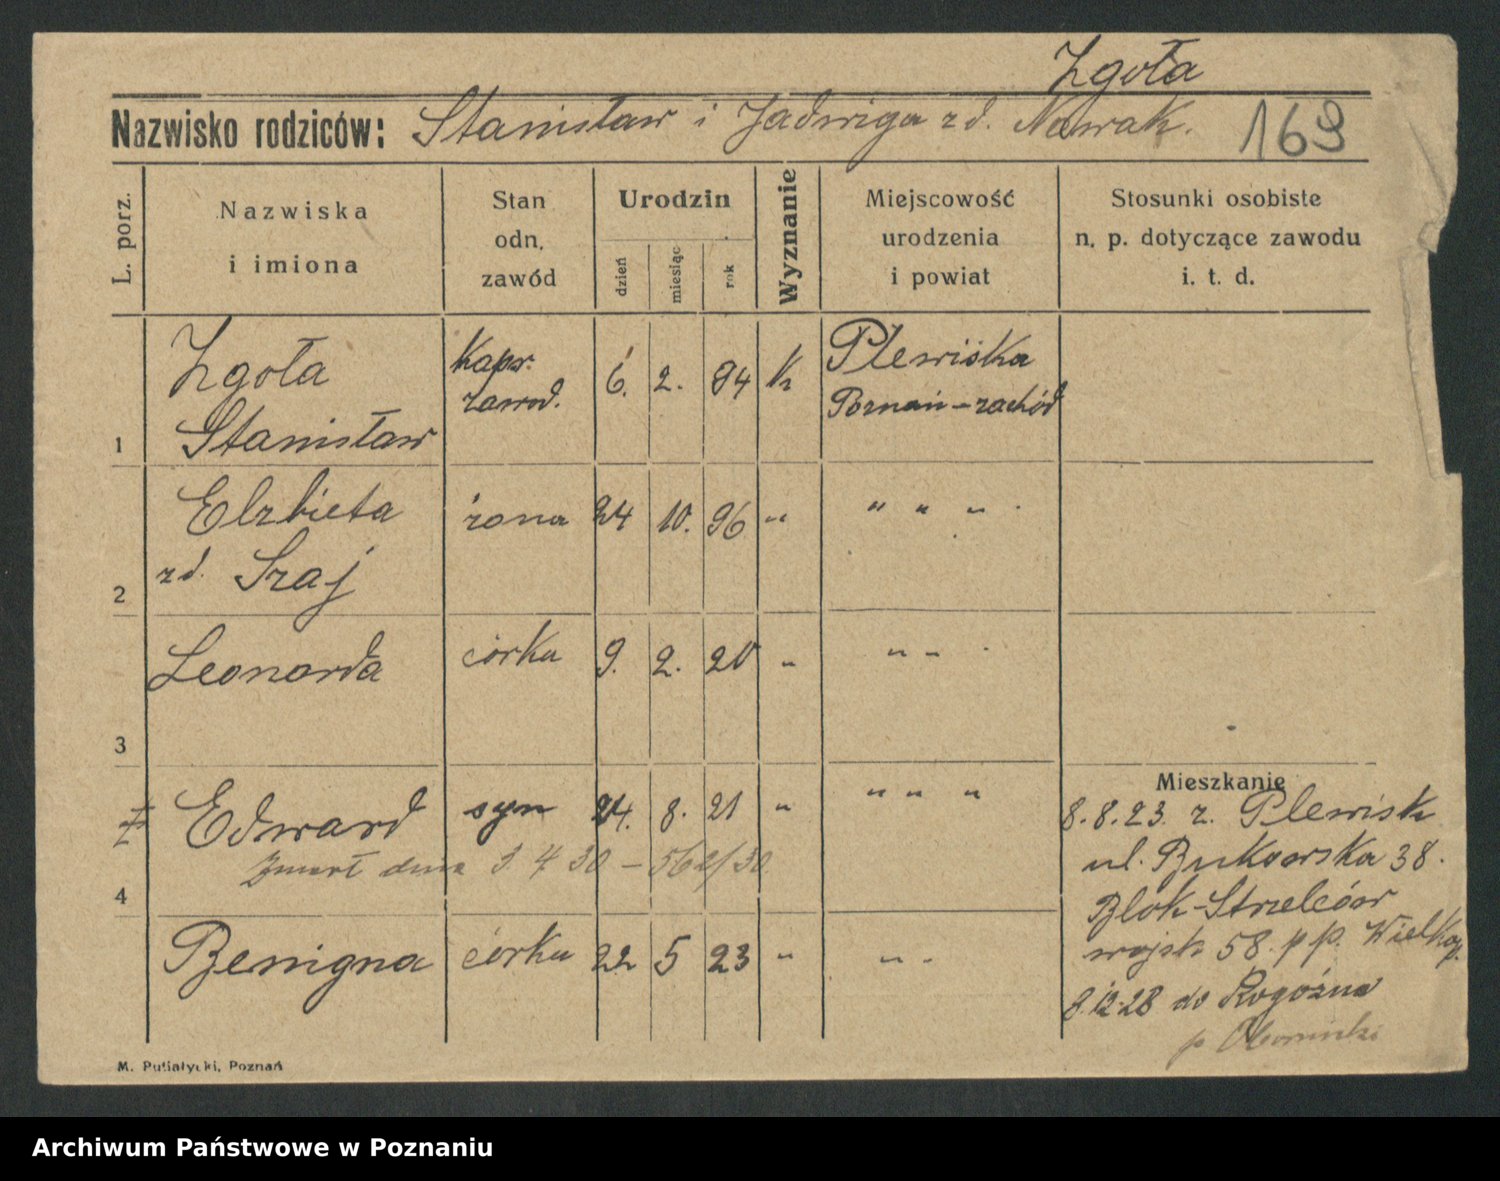 Zgoła
Nazwisko rodziców: Stanisław i Jadwiga zd. Nowak. 169
L. porz.
Nazwiska
i imiona
Stan
odn,
zawód
Urodzin
dzień
miesiąc
rok
Wyznanie
Miejscowość
urodzenia
i powiat
Stosunki osobiste
n. p. dotyczące zawodu
i. t. d.
1 Zgoła Stanisław
kapr. zawod.
6. 2. 94 K
Plewiska
Poznań-zachód
2 Elzbieta
zd. Szaj
żona 24 10. 96 " " " "
3 Leonarda córka 9. 2. 20 " " "
4 Edward syn 24. 8. 21 " " " "
Zmarł dnia 3 4 30 – 562/30
Benigna córka 22 5 23 " "
Mieszkanie
8.8.23. z. Plewisk
ul. Bukowska 38.
Blok-Strzelców
wojsk 58. p p. Wielkop.
8.12.28 do Rogoźna
p Obornicki
M. Putiatycki, Poznań
Archiwum Państwowe w Poznaniu